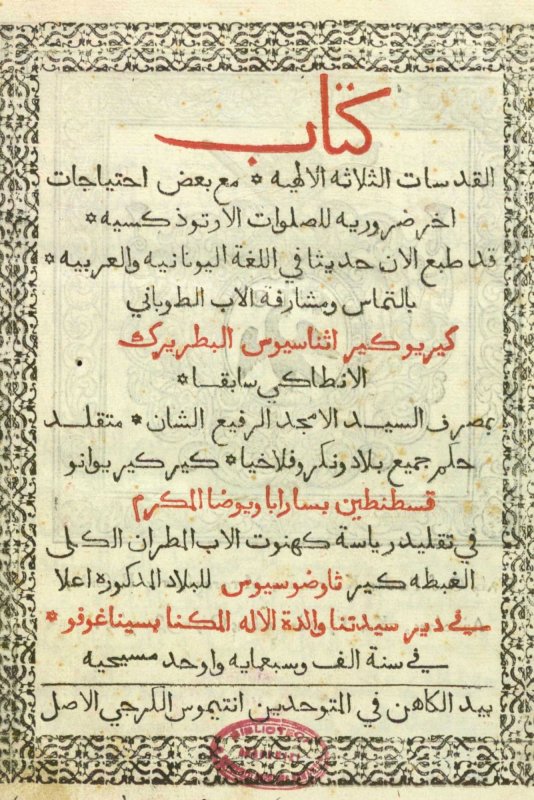 كتاب
القدسات الثلاثه الالهيه * مع بعض احتياجات
اخر ضروريه للصلوات الارتوذكسيه *
قد طبع الان حديثا في اللغة اليونانيه والعربيه *
بالتماس ومشارفة الاب الطوباني
كيريو كير اثناسيوس البطريرك
الانطاكي سابقا *
بمصرف السيد الامجد الرفيع الشان * متقلد
حكم جميع بلاد ونكروفلاخيا * كير كير يوانو
قسطنطين بسارابا ويوضا المكرم
في تقليد رياسة كهنوت الاب المطران الكلى
الغبطه كير ثاوضوسيوس للبلاد المذكوره اعلا
في دير سيدتنا والدة الاله المكنا بسيناغوفو *
في سنة الف وسبعمايه واوحد مسيحيه
بيد الكاهن في المتوحدين انتيموس الكرجي الاصل
BIBLIOTECA